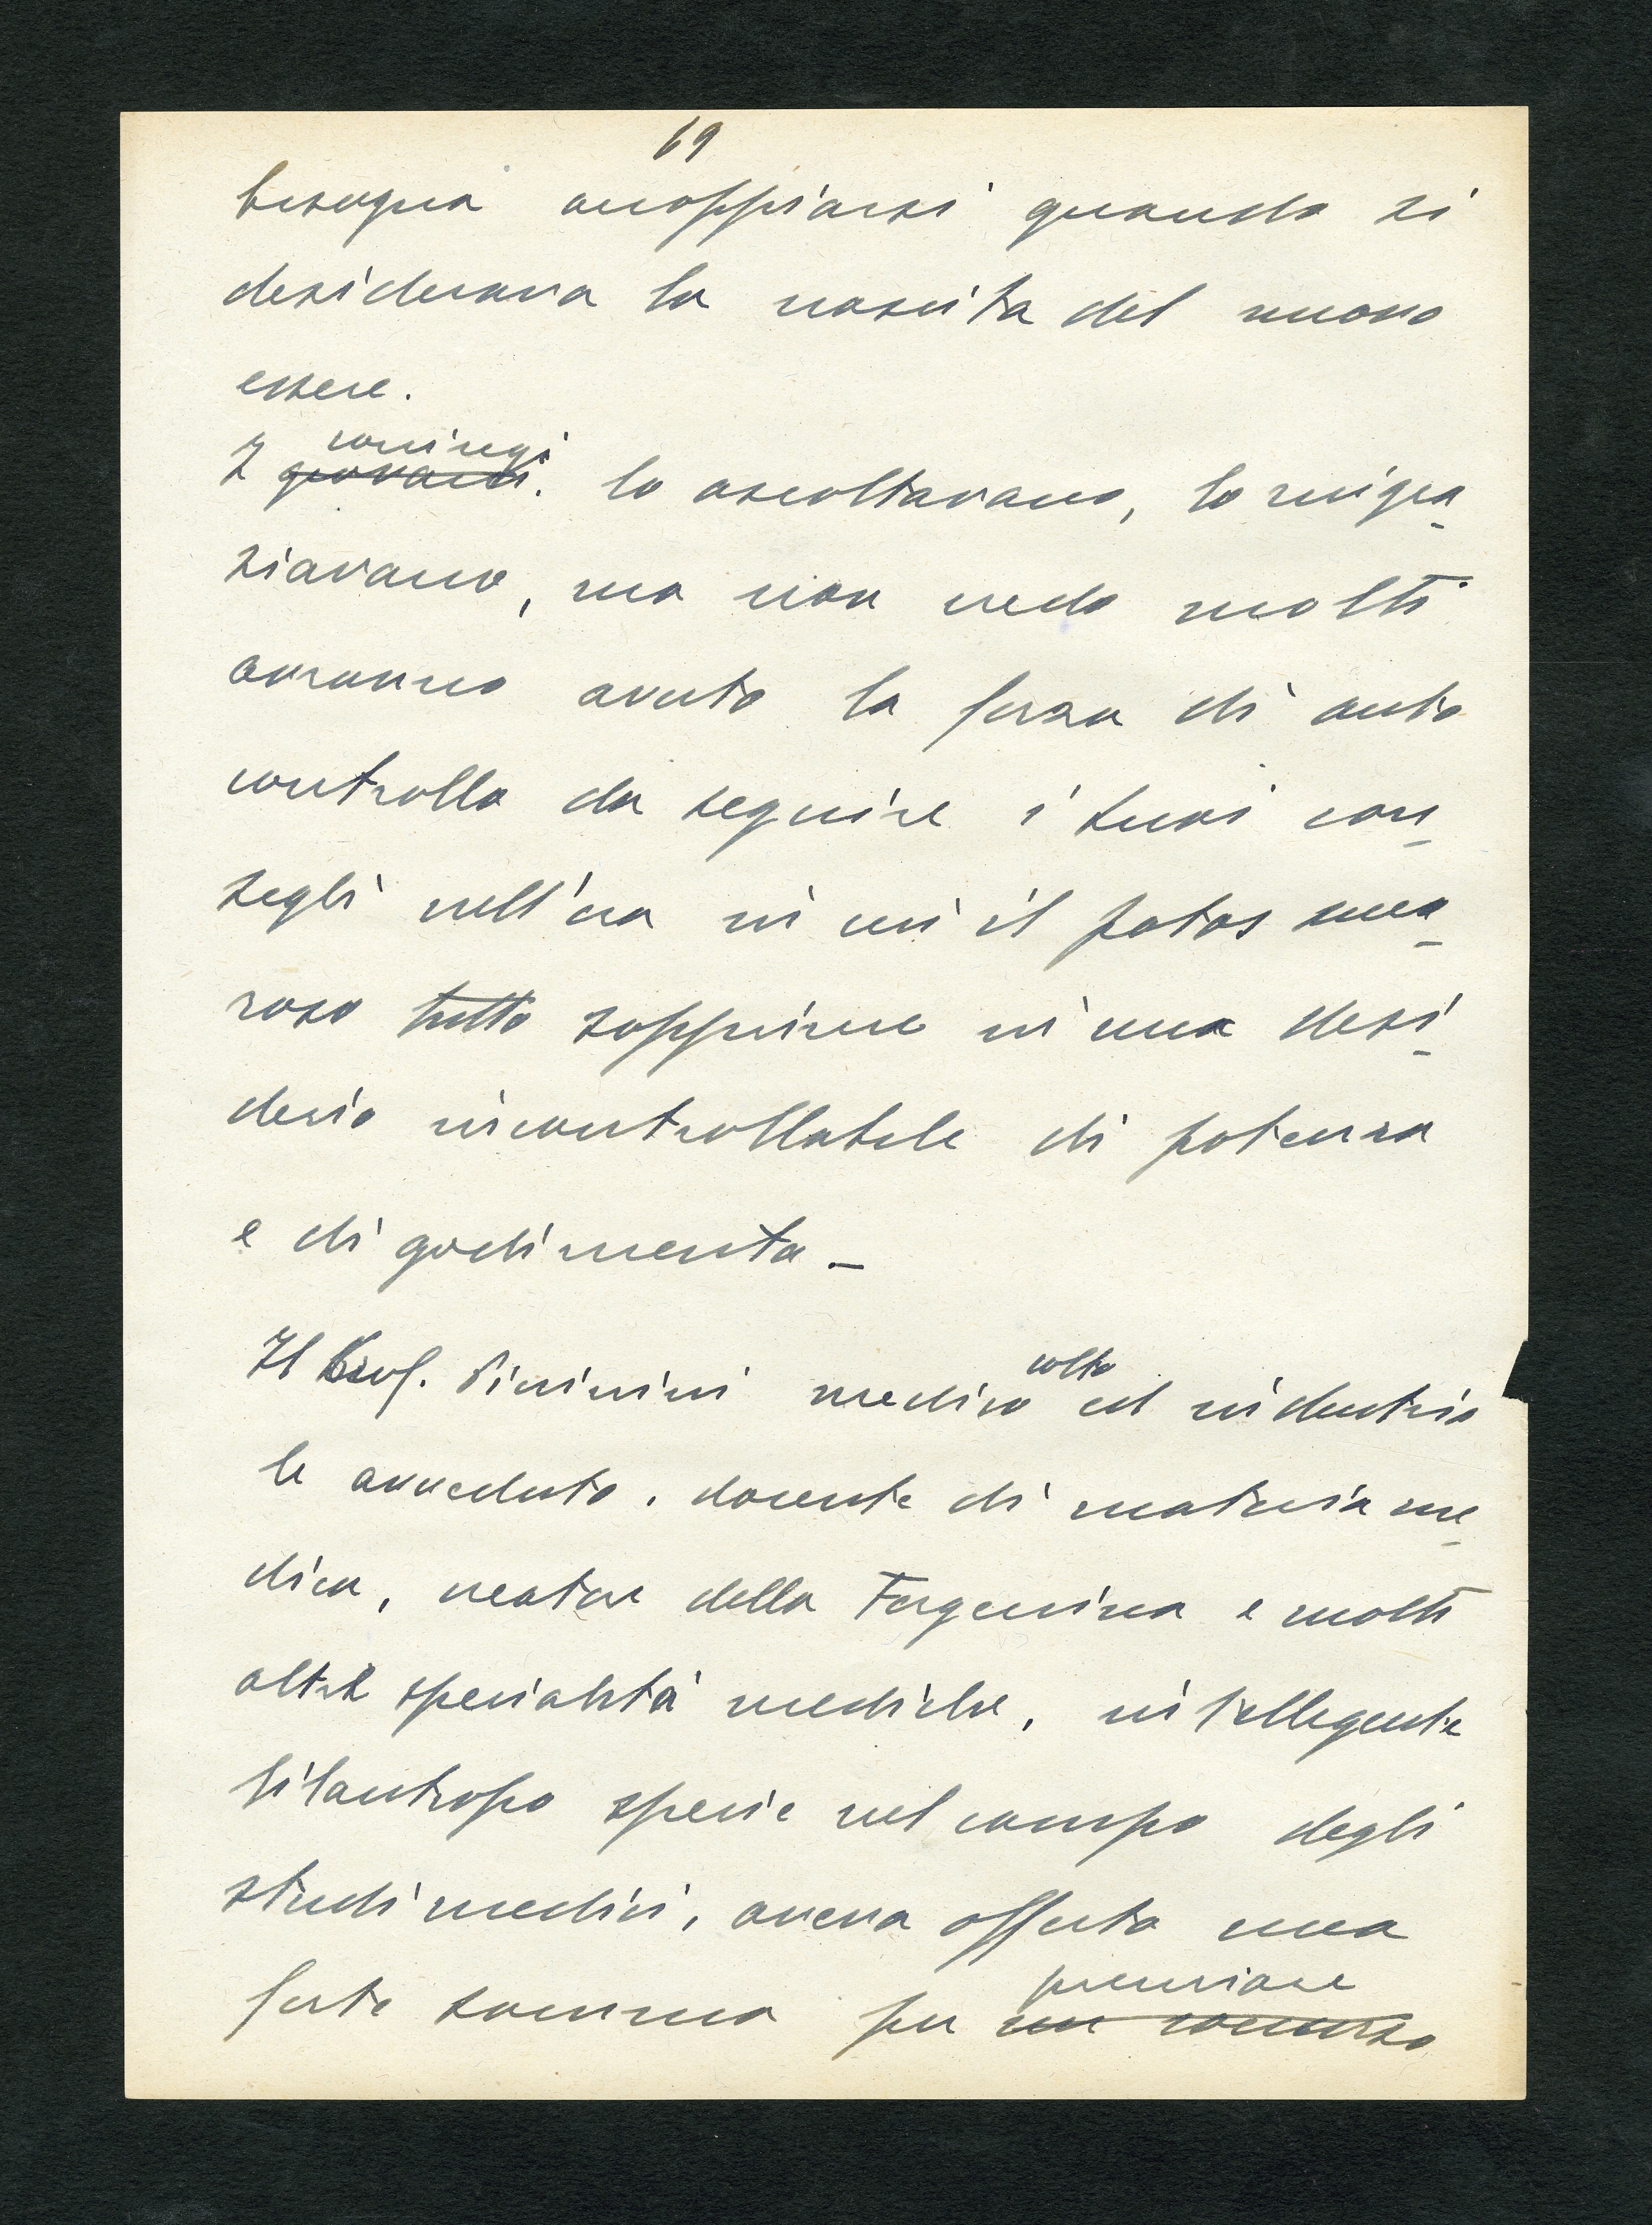 69
bisogna accoppiarsi quando si
desiderava la nascita del nuovo
essere.
coniugi
I giovani. lo ascoltavano, lo ringra
ziavano, ma non credo molti
avranno avuto la forza di auto
controllo da seguire i suoi con
segli nell'ora in cui il patos amo
roso tutto sopprime in una desi
derio incontrollabile di potenza
e di godimento -
colto
Il Prof. medico ed industria
le avveduto, docente di materia me
dica, creatore della e molti
altre specialità mediche, intellegente
filantropo specie nel campo degli
studi medici, aveva offerto una
premiare
forte somma per un concorso